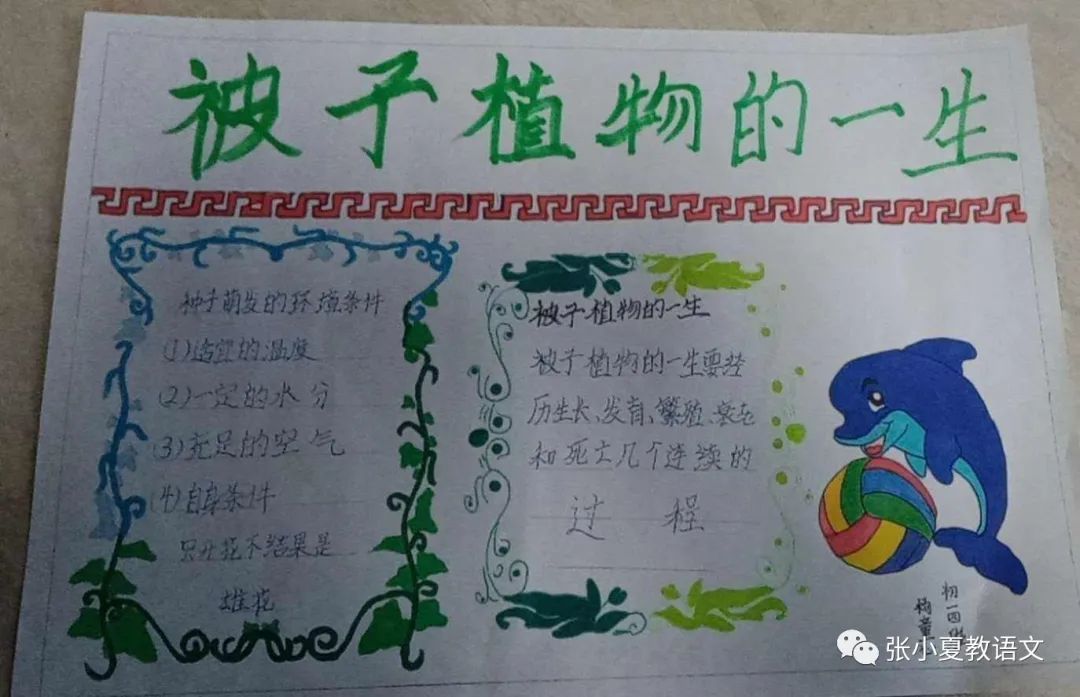 被子植物的一生
种子萌发的环境条件
(1)适宜的温度
(2)一定的水分
(3)充足的空气
(4)自身条件
只开花不结果是
雄花
被子植物的一生
被子植物的一生要经
历生长、发育、繁殖、衰老
和死亡几个连续的
过程
初一四班
童
张小夏教语文